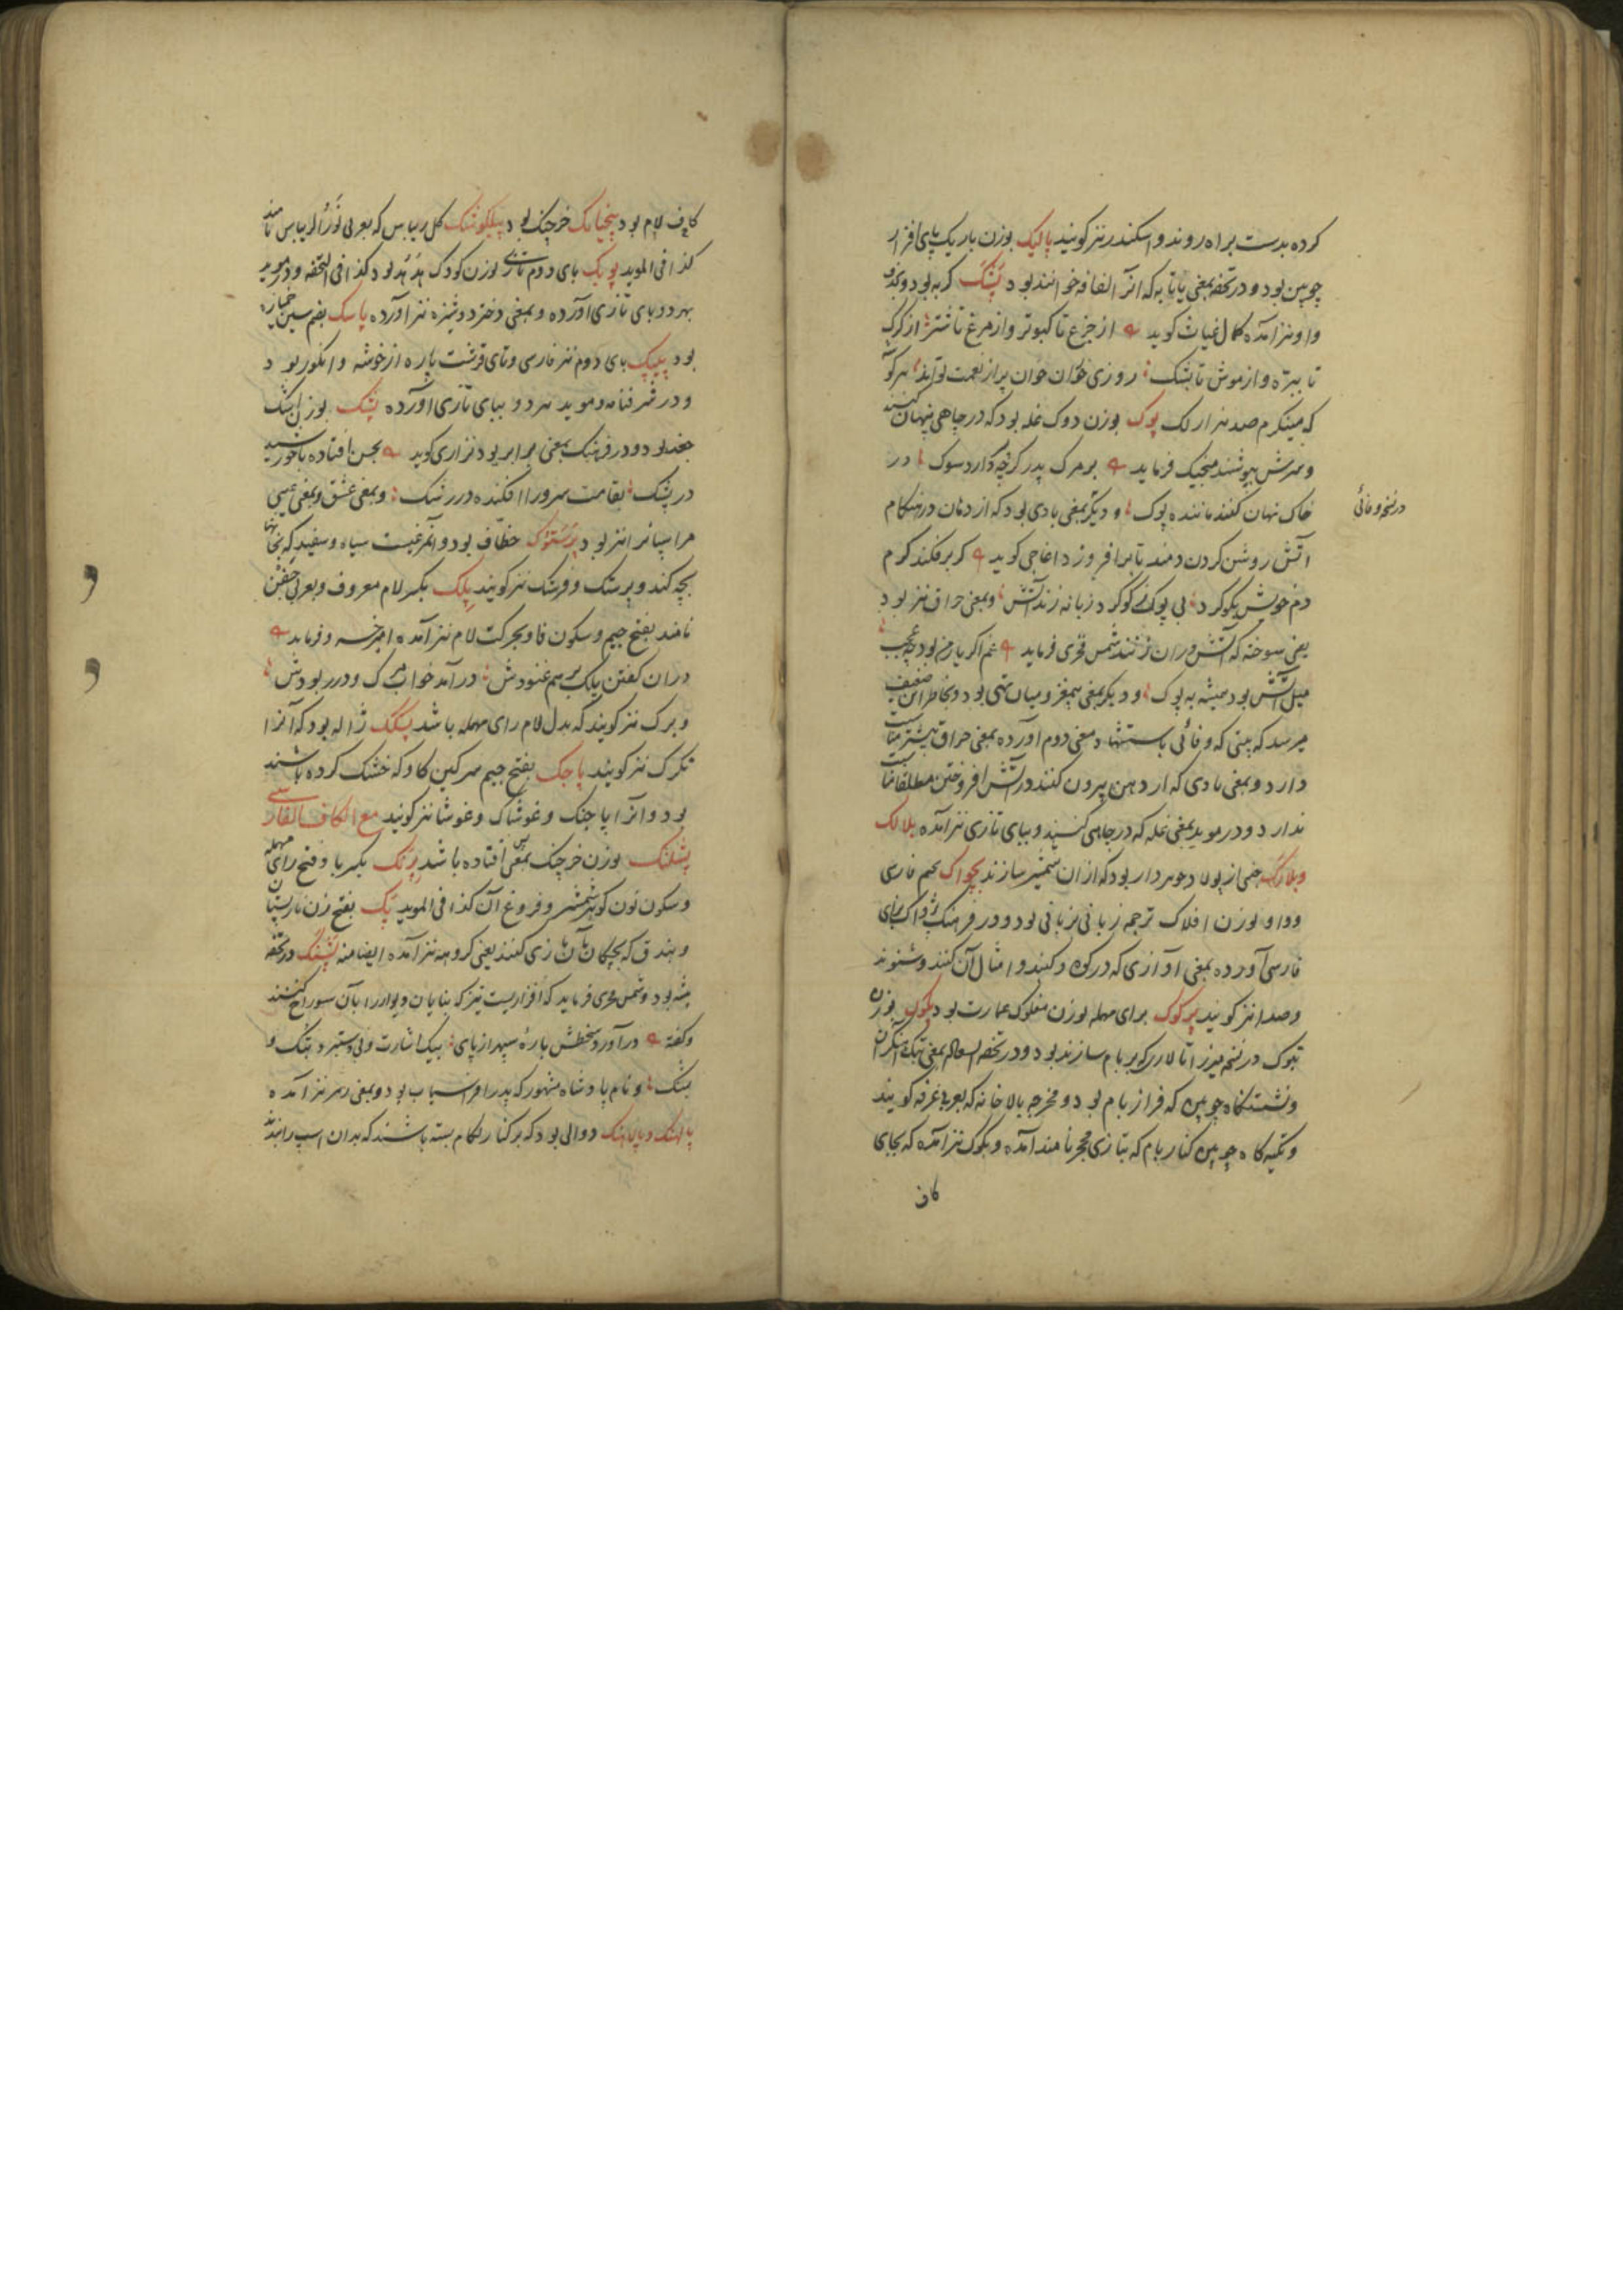 کرده بدست براه روند و اسکندر نیز کویند پالیک بوزن باریک پای افزار
چوبین بود و در تحفه بمعنی پاتابه که انرا لفافه خوانند بود پشک کربه بود و بحذف
واو نیز آمده کمال غیاث کوید از جزع تا کبوتر و از مرغ تا شتر از کرک
تا بره و از موش تا پشک روزی خوران خوان پر از نعمت تواند هر کو
که میبنکرم صد هزار لک پوک بوزن دوک غله بود که در چاهی پنهان کنند
و سرش بپوشند منجیک فرماید بر مرک پدر کرچه دارد سوک در
خاک نهان کنند ماننده پوک و دیگر بمعنی بادی بود که از دهان در هنکام
در نسخه وفائی
آتش روشن کردن دمند تا برافروزد اغاجی کوید کر برفکند کرم
دم خویش بکوکرد بی پوک ز کوکرد زبانه زند آتش و بمعنی حراق نیز بود
یعنی سوخته که آتش دران زنند شمس فخری فرماید غم اکر یار من بود چه عجب
میل آتش بود همیشه به پوک و دیگر بمعنی بیمغز و میان تهی بود و بخاطر این ضعیف
میرسد که بیتی که وفائی باستشهاد معنی دوم آورده بمعنی حراق بیشتر مناسبت
دارد و بمعنی بادی که از دهن بیرون کنند در آتش افروختن مطلقا مناسبت
ندارد و در موید بمعنی غله که در چاهی کنند و ببای تازی نیز آمده بلالک
و بلارک جنسی از پولاد جوهردار بود که ازان شمشیر سازند پچواک بجیم فارسی
و واو بوزن افلاک ترجمه زبانی بزبانی بود و در فرهنک پژواک بزای
فارسی آورده بمعنی آوازی که در کوه و کنبد و امثال آن کنند و شنوند
و صدا نیز کویند پرکوک برای مهمله بوزن مفلوک عمارت بود پکوک بوزن
تبوک در نسخه میرزا تالاری که بر بام سازند بود و در تحفه السعاده بمعنی پتک آهنکران
و نشستکاه چوبین که فراز بام بود و مخرجه بالا خانه که بعربی غرفه کویند
و تکیه کاه چوبین کنار بام که بتازی محجر نامند آمده و بکوک نیز آمده که بجای
کاف
کاف لام بود پنچپایک خرچنک بود پیلکوشک کل ریباس که بعربی نور الریباس نامند
کذا فی الموید پوپک بای دوم تازی بوزن کودک هدهد بود کذا فی التحفه و در موید
بهر دو بای تازی آورده و بمعنی دختر دوشیزه نیز آورده پاسک بفتح سین خمیازه
بود پیپک بای دوم نیز فارسی و تای قرشت پاره از خوشه و انکور بود
و در شرفنامه و موید هر دو ببای تازی آورده پشک بوزن اشک
جغد بود و در فرهنک بمعنی برابر بود نزاری کوید بحسن افتاده با خورشید
در پشک بقامت سرو را افکنده در رشک و بمعنی عشق و بمعنی عیبی
مر اسپانرا نیز بود پرستوک خطاف بود و آن مرغیست سیاه و سفید که بخانها
بچه کند و پرستک و فرشتک نیز کویند پلک بکسر لام معروف و بعربی جفن
نامند بفتح جیم و سکون فا و بحرکت لام نیز آمده امیر خسرو فرماید
دران کفتن پلک بر هم غنودش درآمد خواب مرک و در ربودش
و برک نیز کویند که بدل لام رای مهمله باشد پسکک ژاله بود که آنرا
تکرک نیز کویند پاچک بفتح جیم سرکین کاو که خشک کرده باشند
بود و آنرا پاچنک و غوشاک و غوشا نیز کویند مع الکاف الفارسی
پشلنک بوزن خرچنک بمعنی پس افتاده باشد پرنک بکسر با و فتح رای مهمله
و سکون نون کوهر شمشیر و فروغ آن کذا فی الموید پنک بفتح زن نارپستان
و بندق که بچکان بآن بازی کنند یعنی کروهه نیز آمده ایضا منه پشنک در تحفه
پشه بود و شمس فخری فرماید که افزاریست تیز که بنایان دیوار را بآن سوراخ کنند
و کفته درآورد سخطش باره سپهر از پای بیک اشارت و بی دستبرد پتک و
پشنک و نام پادشاه مشهور که پدر افراسیاب بود و بمعنی دیگر نیز آمده
پالهنک و پالاهنک دوالی بود که بر کنار لکام بسته باشند که بدان اسپ را بندند